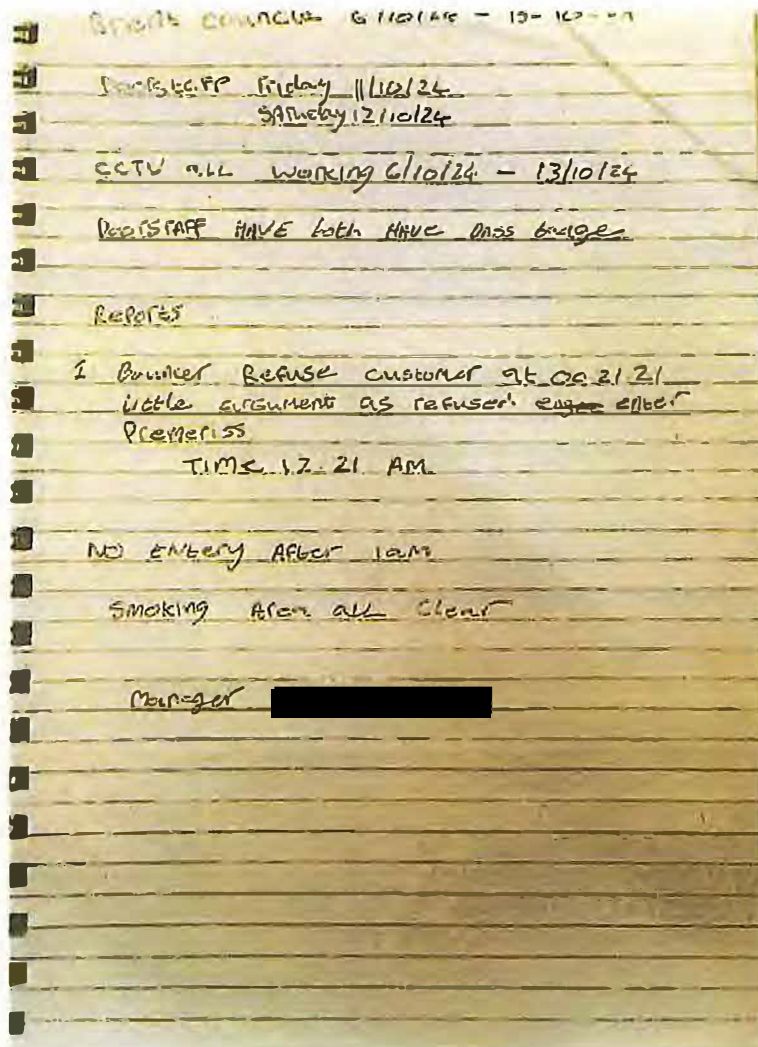 Brent council 6/10/24 - 13-10-24
Doorstaff Friday 11/10/24
Saturday 12/10/24
CCTV all working 6/10/24 - 13/10/24
DoorSTAFF HAVE both HAVE pass badge
Reports
1 Bouncer Refuse customer at 00 21 21
little argument as refused enter
Premeriss
TIME 12.21 AM
NO ENtery After 1am
Smoking Area all clear
Manager